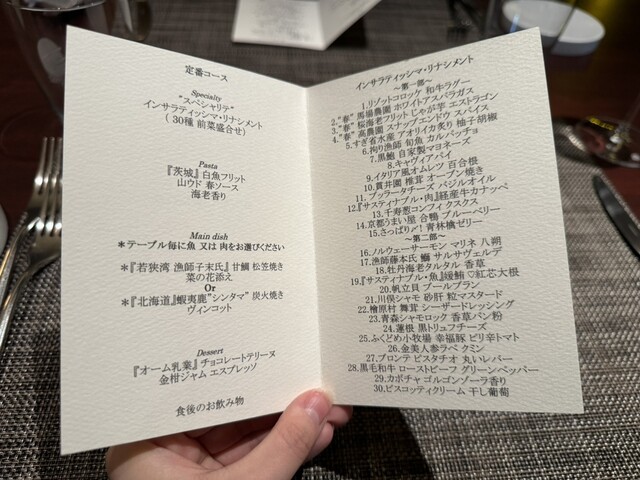 定番コース
Specialty
“スペシャリテ”
インサラティッシマ・リナシメント
( 30種 前菜盛合せ )
Pasta
『茨城』白魚フリット
山ウド 春ソース
海老香り
Main dish
＊テーブル毎に魚 又は 肉をお選びください
＊『若狭湾 漁師子末氏』甘鯛 松笠焼き
菜の花添え
Or
＊『北海道』蝦夷鹿“シンタマ” 炭火焼き
ヴィンコット
Dessert
『オーム乳業』チョコレートテリーヌ
金柑ジャム エスプレッソ
食後のお飲み物
インサラティッシマ・リナシメント
～第一部～
1.リゾットコロッケ 和牛ラグー
2.“春” 馬場農園 ホワイトアスパラガス
3.“春” 桜海老フリット じゃが芋 エストラゴン
4.“春” 高農園 スナップエンドウ スパイス
5.すぎ省水産 アオリイカ炙り 柚子胡椒
6.拘り漁師 旬魚 カルパッチョ
7.黒鮑 自家製マヨネーズ
8.キャヴィアパイ
9.イタリア風オムレツ 百合根
10.貫井園 椎茸 オーブン焼き
11.ブッラータチーズ バジルオイル
12.『サスティナブル・肉』経産牛カナッペ
13.千寿葱コンフィ クスクス
14.京都うまい屋 合鴨 ブルーベリー
15.さっぱり〆! 青林檎ゼリー
～第二部～
16.ノルウェーサーモン マリネ 八朔
17.漁師藤本氏 鰤 サルサヴェルデ
18.牡丹海老タルタル 香草
19.『サスティナブル・魚』緩鮪 ♡紅芯大根
20.帆立貝 ブールブラン
21.川俣シャモ 砂肝 粒マスタード
22.檜原村 舞茸 シーザードレッシング
23.青森シャモロック 香草パン粉
24.蓮根 黒トリュフチーズ
25.ふくどめ小牧場 幸福豚 ピリ辛トマト
26.金美人参ラペ クミン
27.ブロンテ ピスタチオ 丸いレバー
28.黒毛和牛 ローストビーフ グリーンペッパー
29.カボチャ ゴルゴンゾーラ香り
30.ビスコッティクリーム 干し葡萄